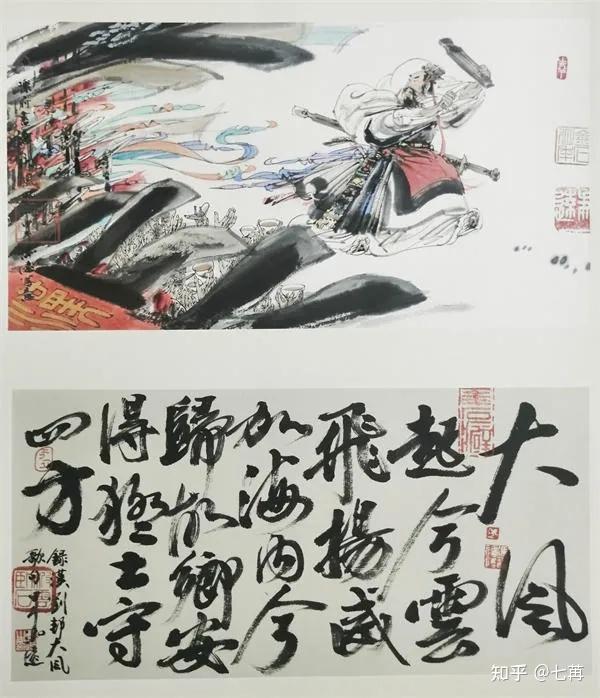 大风
起兮雲
飛揚威
加海内兮
歸故鄉安
得猛士守
四方
錄漢刘邦大风
歌句
知乎 @七苒